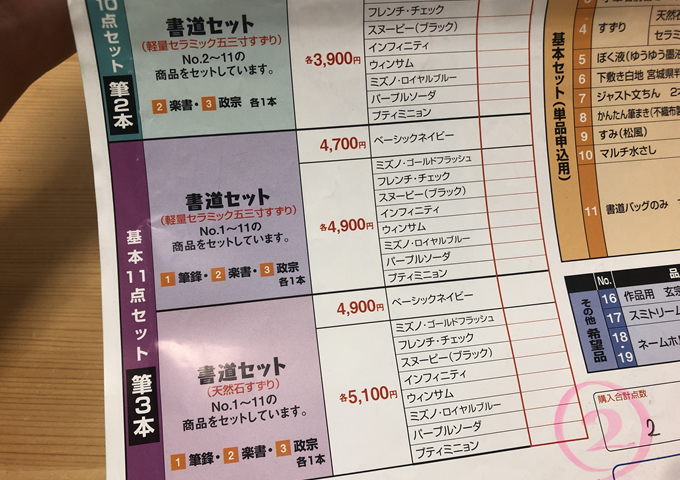 10点セット 筆2本
書道セット
(軽量セラミック五三寸すずり)
No.2〜11の
商品をセットしています。
2 楽書・3 政宗 各1本
各3,900円
フレンチ・チェック
スヌーピー(ブラック)
インフィニティ
ウィンサム
ミズノ・ロイヤルブルー
パープルソーダ
プティミニョン
基本11点セット 筆3本
書道セット
(軽量セラミック五三寸すずり)
No.1〜11の
商品をセットしています。
1 筆鋒・2 楽書・3 政宗
各1本
4,700円
ベーシックネイビー
各4,900円
ミズノ・ゴールドフラッシュ
フレンチ・チェック
スヌーピー(ブラック)
インフィニティ
ウィンサム
ミズノ・ロイヤルブルー
パープルソーダ
プティミニョン
書道セット
(天然石すずり)
No.1〜11の
商品をセットしています。
1 筆鋒・2 楽書・3 政宗
各1本
4,900円
ベーシックネイビー
各5,100円
ミズノ・ゴールドフラッシュ
フレンチ・チェック
スヌーピー(ブラック)
インフィニティ
ウィンサム
ミズノ・ロイヤルブルー
パープルソーダ
プティミニョン
基本セット(単品申込用)
4 すずり
天然石
セラミ
5 ぼく液(ゆうゆう墨液
6 下敷き白地 宮城県判
7 ジャスト文ちん 2本
8 かんたん筆まき(不織布製
9 すみ(松風)
10 マルチ水さし
11 書道バッグのみ
No. 品
その他希望品
16 作品用 玄宗
17 スミトリーム
18・19 ネームホル
購入合計点数
2
②